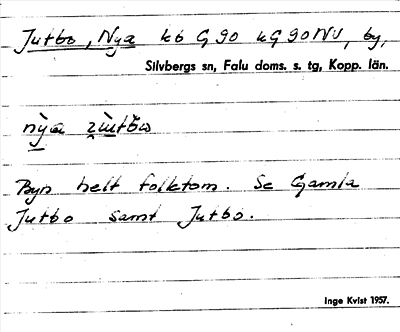 Jutbo, Nya kb G 90 kG 90 NV, by,
Silvbergs sn, Falu doms. s. tg, Kopp. län.
nỳa
Byn helt folktom. Se Gamla
Jutbo samt Jutbo.
Inge Kvist 1957.